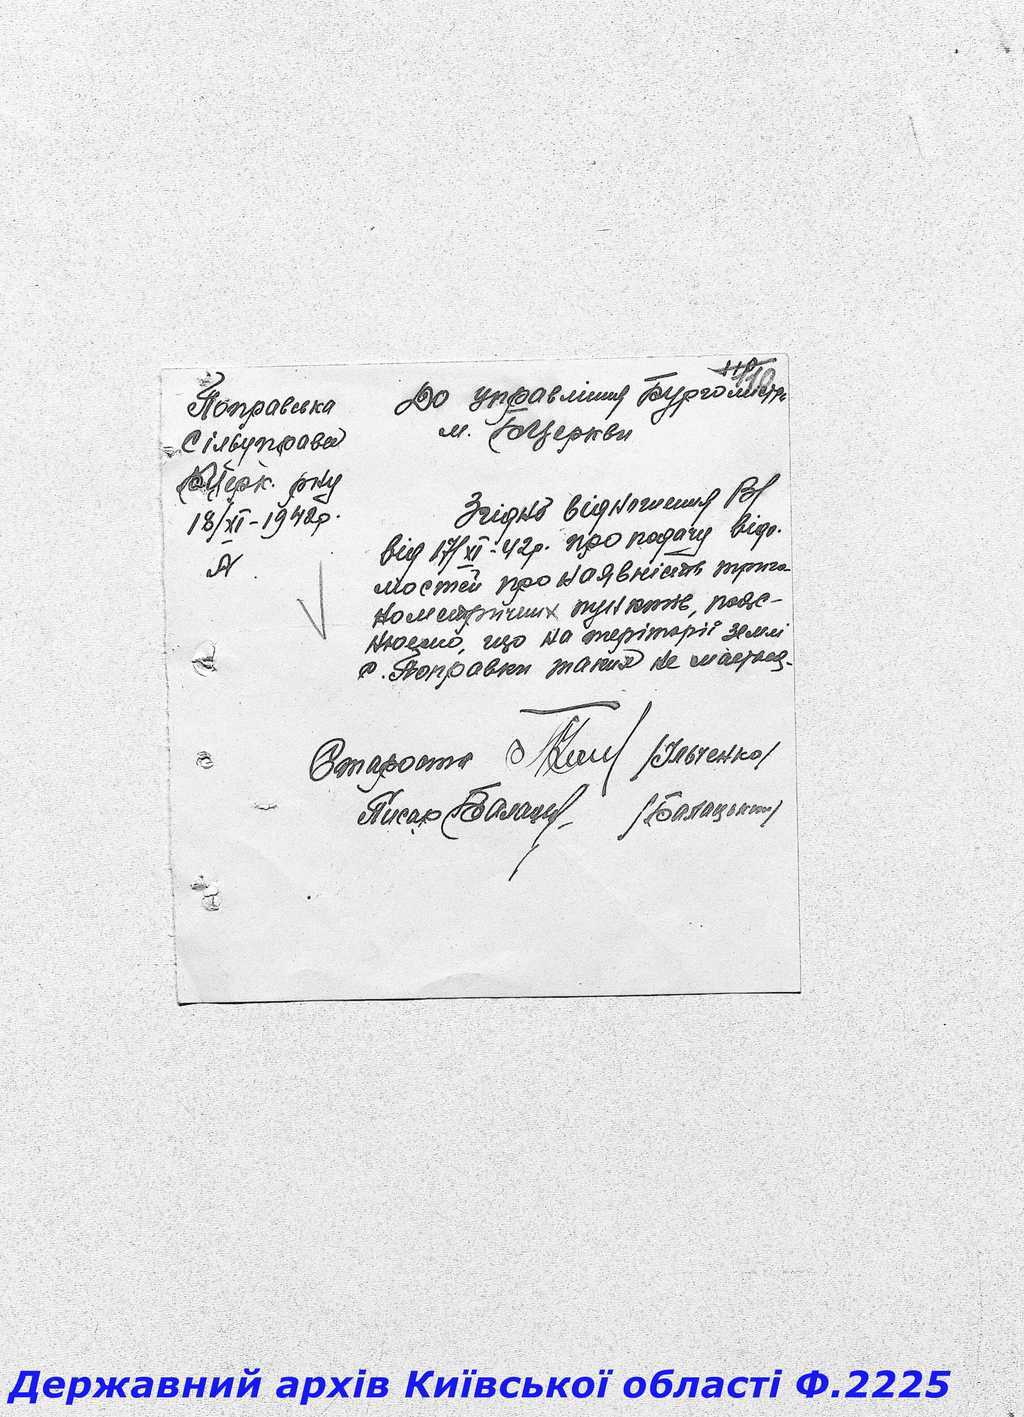 110
Поправська
Сільуправа
БЦерк. р-ну
18/XI-1942р.
№
До управління Бургомістра
м. БЦеркви
Згідно відношення
від 17/XI-42р. про подачу відо-
мостей про наявність триго-
нометричних пунктів, пояс-
нюємо, що на території землі
с. Поправки таких не мається.
Староста /Ільченко/
Писар /Балацький/
Державний архів Київської області Ф.2225